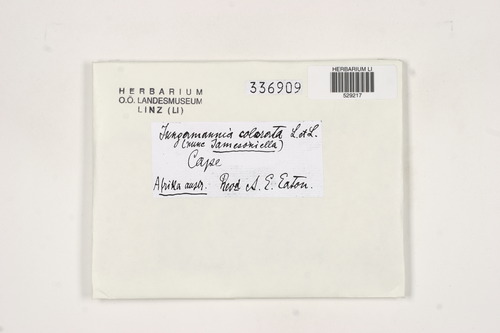 HERBARIUM
O.Ö. LANDESMUSEUM
LINZ (LI)
336909
HERBARIUM LI
529217
Jungermannia colorata L. et L.
(nunc Jamesoniella)
Cape
Afrika austr. A. E. Eaton.